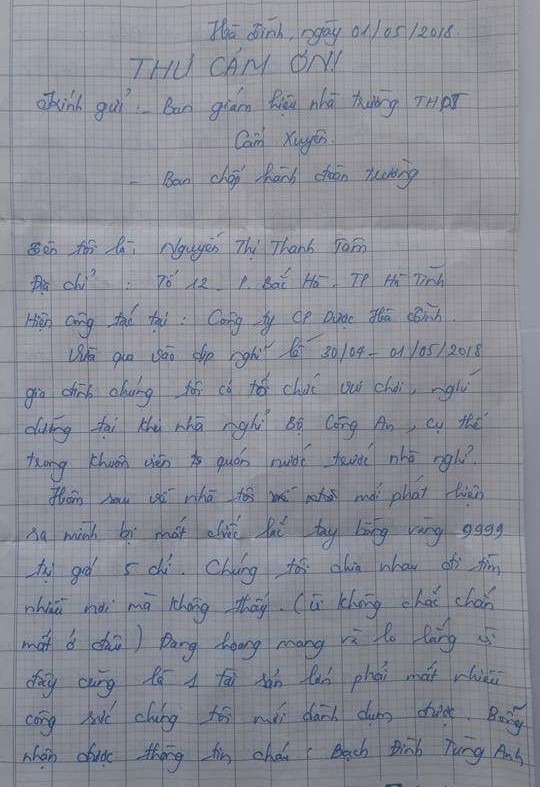 Hà Tĩnh, ngày 01/05/2018.
THƯ CẢM ƠN!
Kính gửi: - Ban giám hiệu nhà trường THPT
Cẩm Xuyên.
- Ban chấp hành đoàn trường
Tên tôi là: Nguyễn Thị Thanh Tâm
Địa chỉ : Tổ 12. P. Bắc Hà. TP Hà Tĩnh
Hiện công tác tại: Công ty CP Dược Hà Tĩnh.
Vừa qua vào dịp nghỉ lễ 30/04 - 01/05/2018
gia đình chúng tôi có tổ chức vui chơi, nghỉ
dưỡng tại khu nhà nghỉ Bộ Công An, cụ thể
trong khuôn viên quán nước trước nhà nghỉ.
Hôm sau về nhà tôi mới phát hiện
ra mình bị mất chiếc lắc tay bằng vàng 9999
trị giá 5 chỉ. Chúng tôi chia nhau đi tìm
nhiều nơi mà không thấy. (Vì không chắc chắn
mất ở đâu) Đang hoang mang và lo lắng vì
đây cũng là 1 tài sản lớn phải mất nhiều
công sức chúng tôi mới dành dụm được. Bỗng
nhận được thông tin cháu: Bạch Đình Tùng Anh